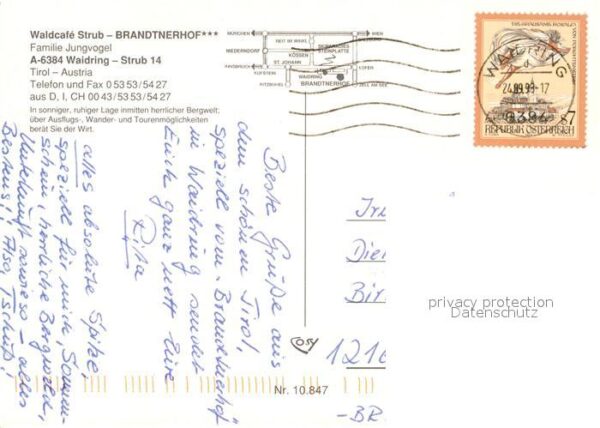 Waldcafé Strub – BRANDTNERHOF***
Familie Jungvogel
A-6384 Waidring – Strub 14
Tirol – Austria
Telefon und Fax 0 53 53 / 54 27
aus D, I, CH 00 43 / 53 53 / 54 27
In sonniger, ruhiger Lage inmitten herrlicher Bergwelt,
über Ausflugs-, Wander- und Tourenmöglichkeiten
berät Sie der Wirt.
MÜNCHEN
WIEN
REIT IM WINKL
KÖSSEN
NIEDERNDORF
STEINPLATTE
ST. JOHANN
LOFER
INNSBRUCK
KUFSTEIN
WAIDRING
BRANDTNERHOF
KITZBÜHEL
ZELL AM SEE
WAIDRING
24.09.99-17
6384
S7
REPUBLIK ÖSTERREICH
Beste Grüße aus
dem schönen Tirol,
speziell vom "Brandtnerhof"
in Waidring sendet
Euch ganz nett Eure
Rita
alles absolute Spitze,
speziell für mich, Sonnen-
schein, herrliche Bergwelt,
Unterkunft sowieso – alles
Bestens! Also, Tschüß!
Die
Bir
1216
-BR
privacy protection
Datenschutz
Nr. 10.847